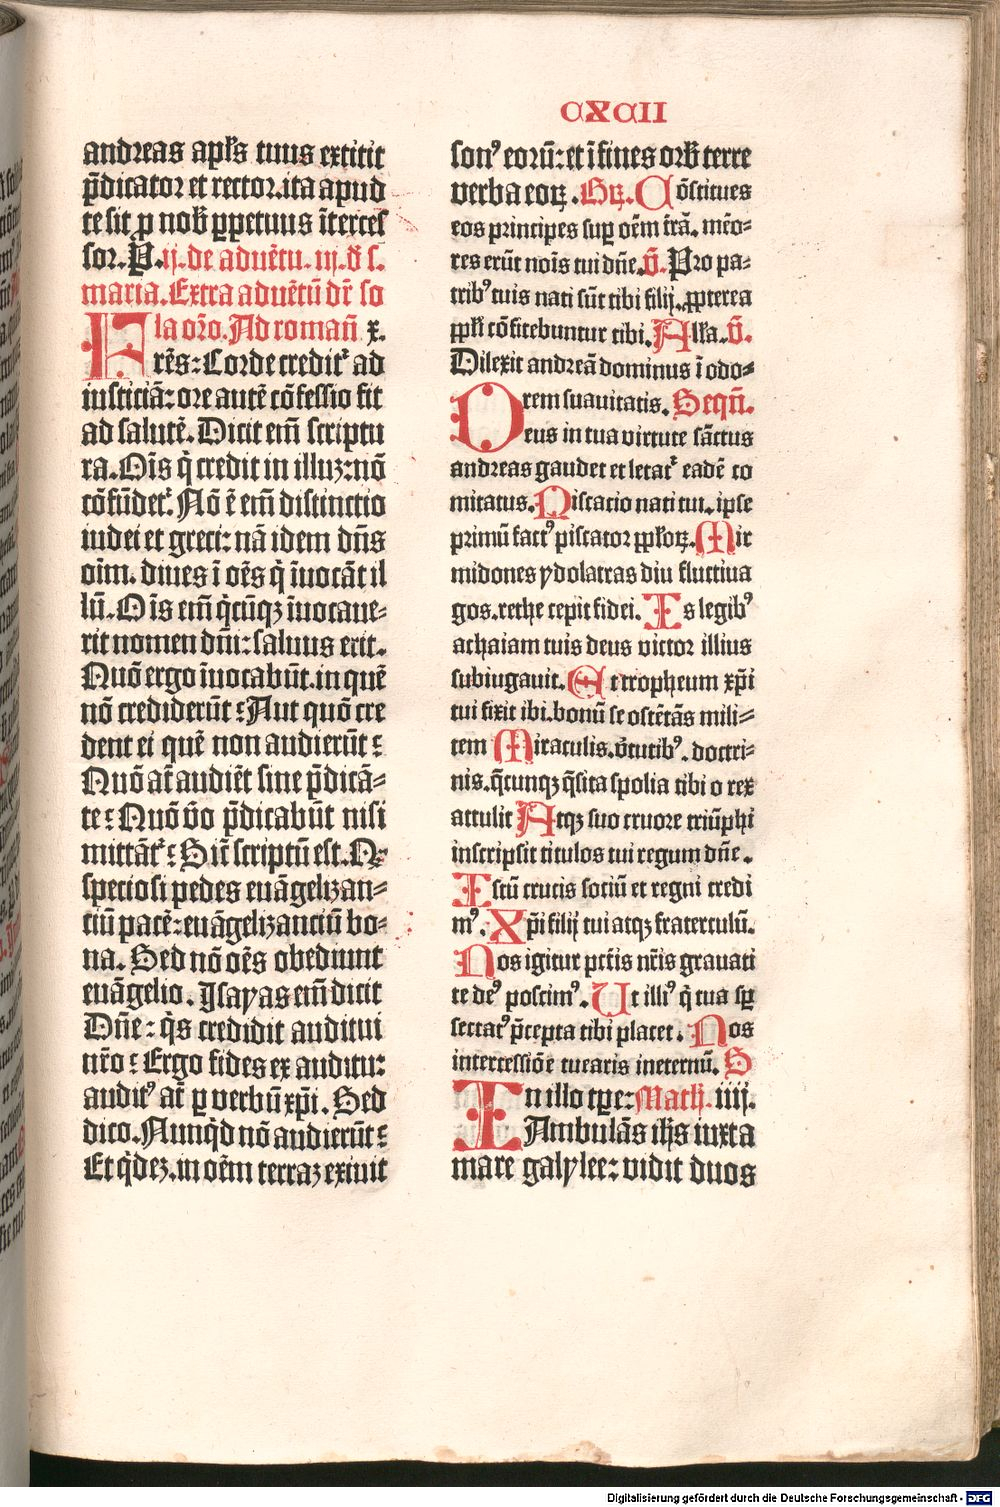 CXCII
andreas apl̄s tuus extitit
p̄dicator et rector. ita apud
te sit ꝓ nob̄ ꝑpetuus īterces
sor. P. ij. de aduētu. iij. d̄ s.
maria. Extra aduētū dr̄ so
la orō. Ad roman̄ x.
Frēs: Corde creditᷣ ad
iusticiā: ore autē cōfessio fit
ad salutē. Dicit em̄ scriptu
ra. Oīs q̇ credit in illuꝫ: nō
cōfūdetᷣ. Nō ē em̄ distinctio
iudei et greci: nā idem dn̄s
oīm. diues ī oēs q̇ īuocāt il
lū. Oīs em̄ q̇cūqꝫ īuocaue-
rit nomen dn̄i: saluus erit.
Quō ergo īuocabūt. in quē
nō crediderūt: Aut quō cre
dent ei quē non audierūt:
Quō at̄ audiēt sine p̄dicā-
te: Quō v̄o p̄dicabūt nisi
mittātᷣ: Sic̄ scriptū est. Qꝫ
speciosi pedes euāgelizan-
tiū pacē: euāgelizanciū bo-
na. Sed nō oēs obediunt
euāgelio. Isayas em̄ dicit
Dn̄e: q̇s credidit auditui
nr̄o: Ergo fides ex auditu:
auditꝰ at̄ ꝑ verbū xp̄i. Sed
dico. Nunq̇d nō audierūt:
Et q̇dez. in oēm terraꝫ exiuit
sonꝰ eorū: et ī fines orb̄ terre
verba eoꝝ. Gꝝ. Cōstitues
eos principes suꝑ oēm t̄rā. mēo-
res erūt noīs tui dn̄e. V̄. Pro pa-
tribꝰ tuis nati sūt tibi filij. ꝓpterea
ppl̄i cōfitebuntur tibi. All̄a. V̄.
Dilexit andreā dominus ī odo-
rem suauitatis. Sequn̄.
Deus in tua virtute sāctus
andreas gaudet et letatᷣ eadē co
mitatus. Discacio nati tui. ipse
primū factꝰ piscator ppl̄oꝝ. Mir
midones ydolatras diu fluctiua
gos. rethe cepit fidei. Is legibꝰ
achaiam tuis deus victor illius
subiugauit. Et tropheum xp̄i
tui fixit ibi. bonū se ostētās mili-
tem Miraculis. v̄tutibꝰ. doctri-
nis. q̄cunqꝫ q̄sita spolia tibi o rex
attulit Atqꝫ suo cruore triūphi
inscripsit titulos tui regum dn̄e.
Istū crucis sociū et regni credi
mꝰ. Xp̄i filij tui atqꝫ fraterculū.
Nos igitur pct̄is nr̄is grauati
te deꝰ poscimꝰ. Ut illiꝰ q̇ tua sꝑ
sectatꝰ p̄cepta tibi placet. Nos
intercessiōe tuearis ineternū. S
In illo tꝑe: Math. iiij.
Ambulās ih̄s iuxta
mare galylee: vidit duos
Digitalisierung gefördert durch die Deutsche Forschungsgemeinschaft - DFG